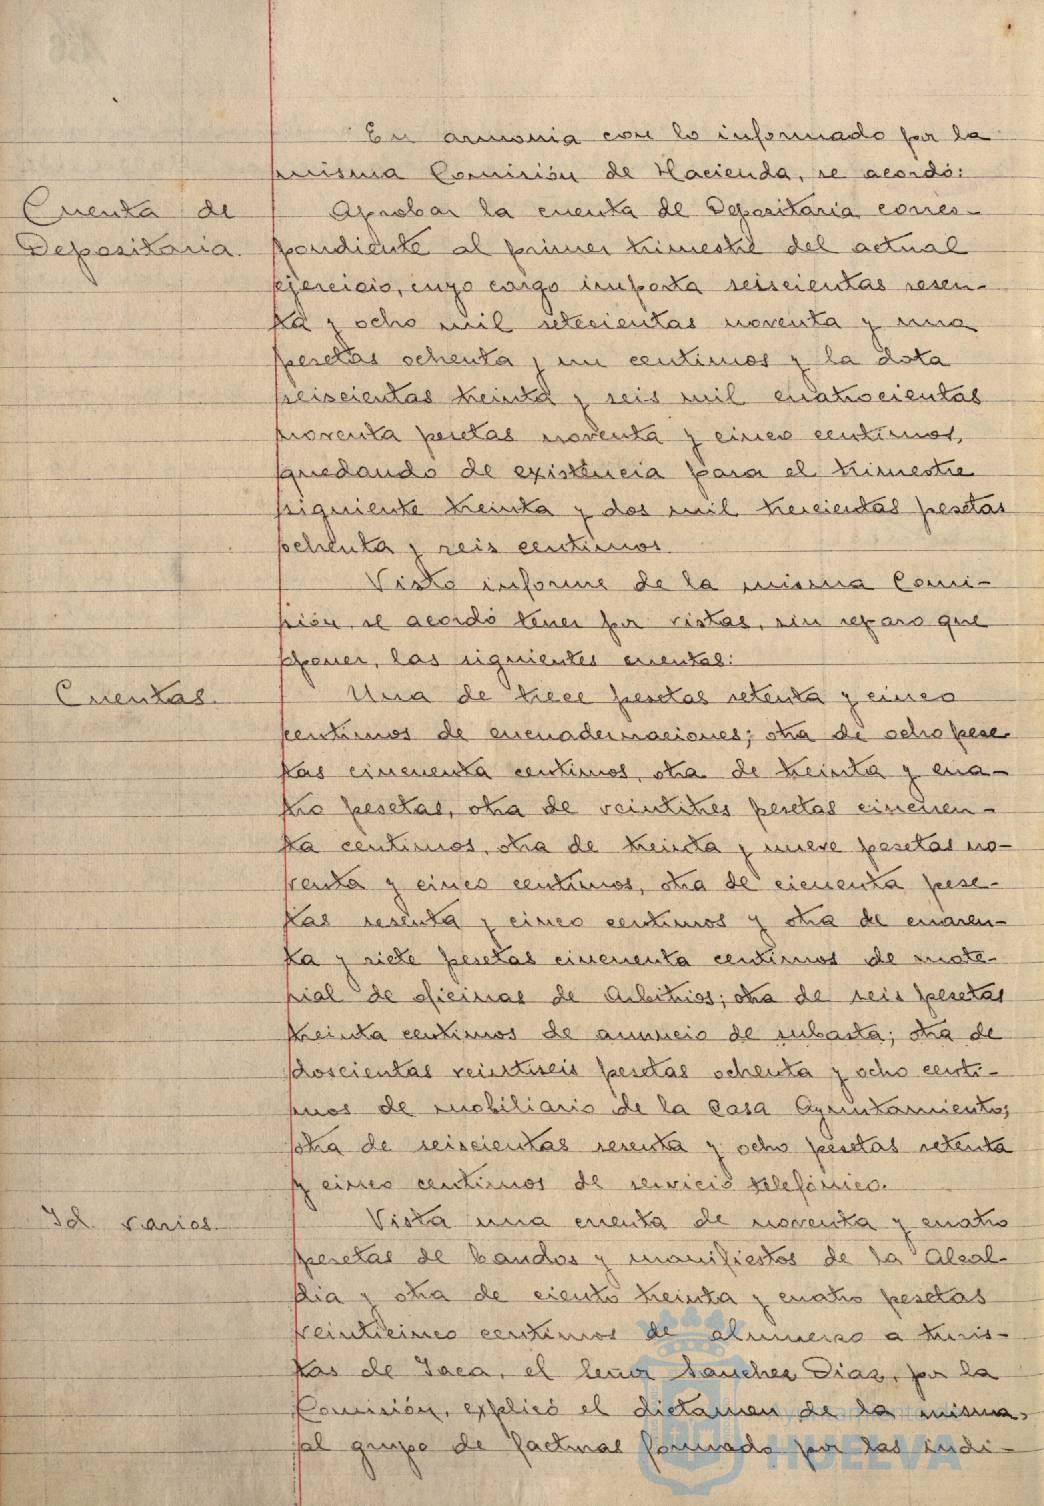 En armonia con lo informado por la
misma Comisión de Hacienda, se acordó:
Cuenta de
Depositaria.
Aprobar la cuenta de Depositaria corres-
pondiente al primer trimestre del actual
ejercicio, cuyo cargo importa seiscientas sesen-
ta y ocho mil setecientas noventa y una
pesetas ochenta y un centimos y la data
seiscientas treinta y seis mil cuatrocientas
noventa pesetas noventa y cinco centimos,
quedando de existencia para el trimestre
siguiente treinta y dos mil trescientas pesetas
ochenta y seis centimos.
Visto informe de la misma Comi-
sión, se acordó tener por vistas, sin reparo que
oponer, las siguientes cuentas:
Cuentas.
Una de trece pesetas setenta y cinco
centimos de encuadernaciones; otra de ocho pese
tas cincuenta centimos, otra de treinta y cua-
tro pesetas, otra de veintitres pesetas cincuen-
ta centimos, otra de treinta y nueve pesetas no-
venta y cinco centimos, otra de cicuenta pese-
tas sesenta y cinco centimos y otra de cuaren-
ta y siete pesetas cincuenta centimos de mate-
rial de oficinas de Arbitrios; otra de seis pesetas
treinta centimos de anuncio de subasta; otra de
doscientas veintiseis pesetas ochenta y ocho centi-
mos de mobiliario de la Casa Ayuntamiento;
otra de seiscientas sesenta y ocho pesetas setenta
y cinco centimos de servicio telefónico.
Id. varios.
Vista una cuenta de noventa y cuatro
pesetas de bandos y manifiestos de la Alcal-
dia y otra de ciento treinta y cuatro pesetas
veinticinco centimos de almuerzo a turis-
tas de Jaca, el Señor Sanchez Diaz, por la
Comisión, explicó el dictamen de la misma,
al grupo de facturas formado por las indi-
Ayuntamiento de
HUELVA